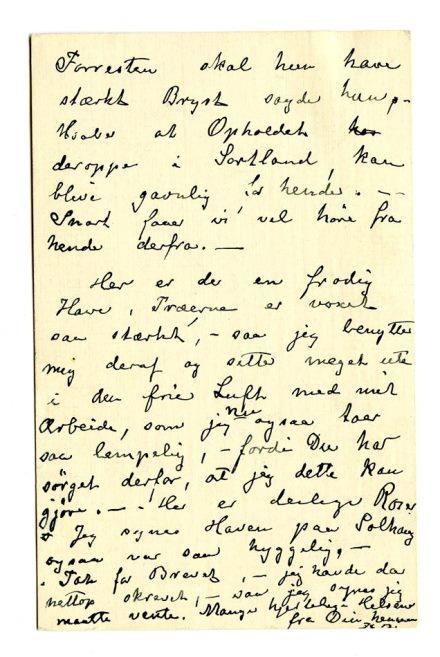 Forresten skal hun have
stærkt Bryst sagde hun,-
Haaber at Opholdet
deroppe i Sortland, kan
blive gavnlig for hende. —
Snart faar vi vel höre fra
hende derfra. —
Her er der en frodig
Have, Træerne er voxet
saa stærkt, - saa jeg benytter
mig deraf og sitte meget ute
i den frie Luft med mit
Arbeide, som jeg nu ogsaa taar
saa lempelig, - fordi Du har
sörget derfor, at jeg dette kan
gjöre. - Her er deilige Roser
Jeg synes Haven paa Solhaug
ogsaa var saa hyggelig, -
Tak for Brevet, - jeg havde da
nettop skrevet, - saa jeg synes jeg
maatte vente. Mange hjertelige Hilsener
fra Din hengivne